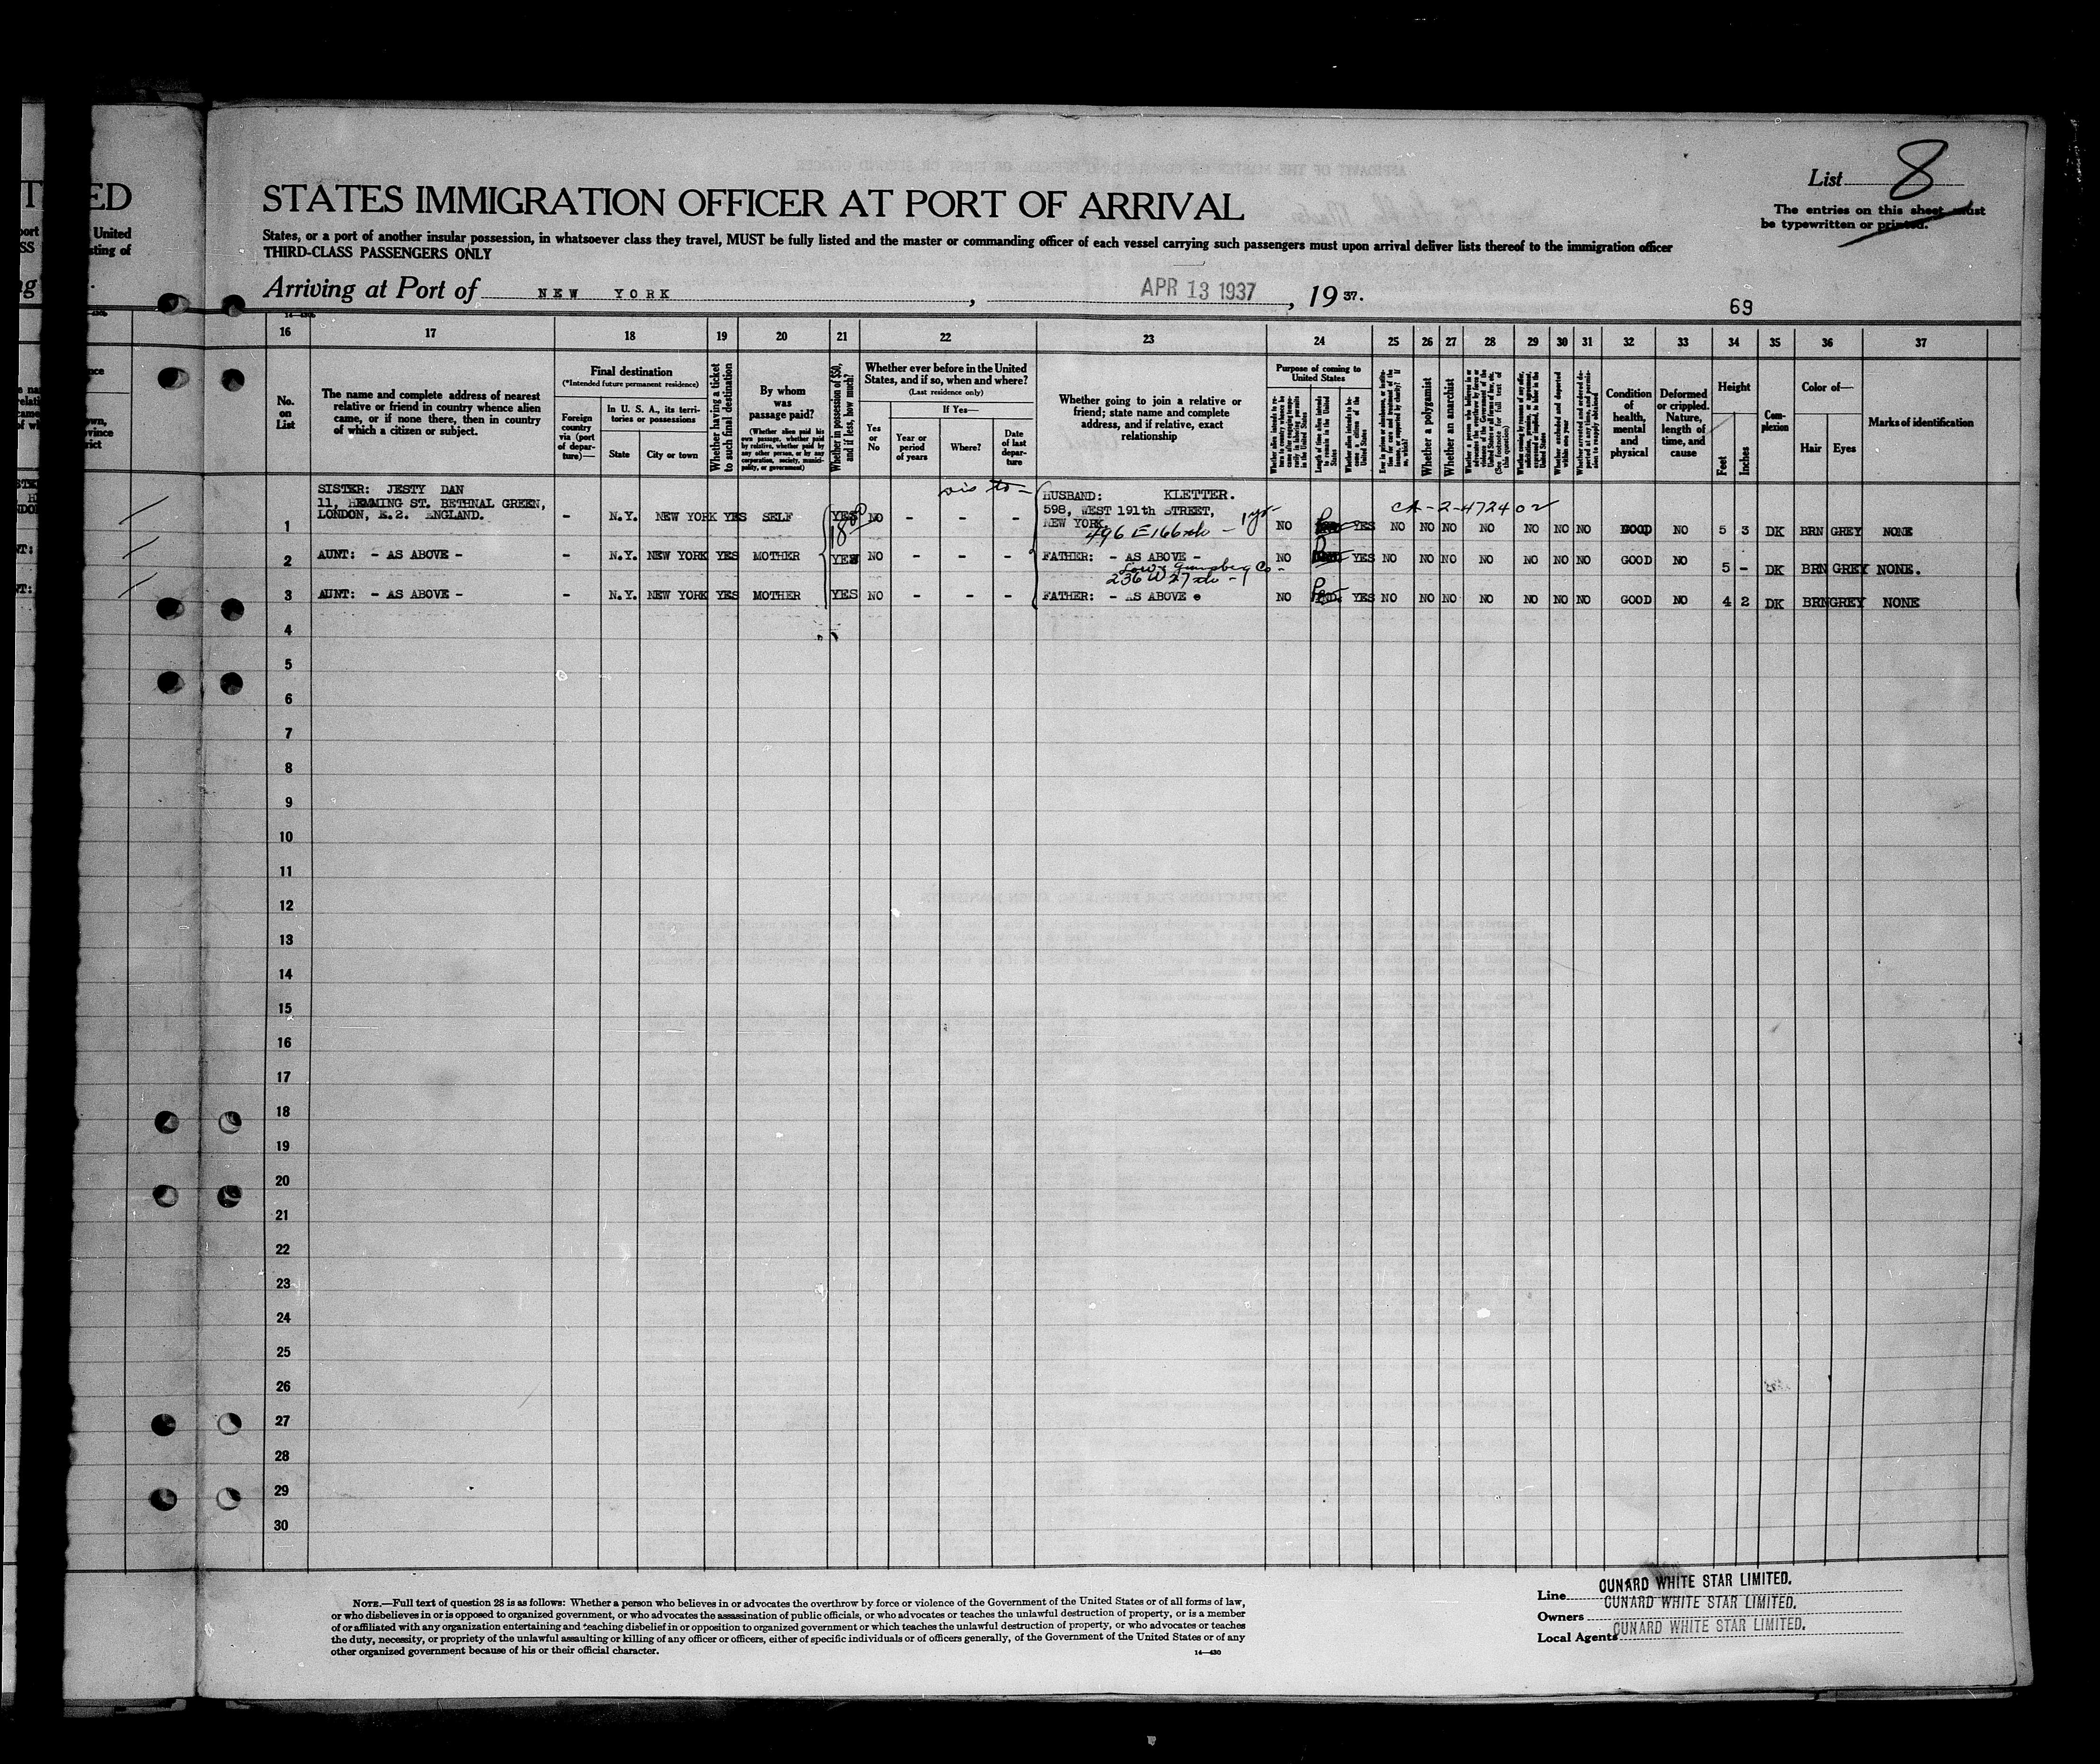 TED
United
sting of
List 8
The entries on this sheet must
be typewritten or printed.
STATES IMMIGRATION OFFICER AT PORT OF ARRIVAL
States, or a port of another insular possession, in whatsoever class they travel, MUST be fully listed and the master or commanding officer of each vessel carrying such passengers must upon arrival deliver lists thereof to the immigration officer
THIRD-CLASS PASSENGERS ONLY
Arriving at Port of NEW YORK, APR 13 1937, 19 37.
69
16 17 18 19 20 21 22 23 24 25 26 27 28 29 30 31 32 33 34 35 36 37
No. on List
The name and complete address of nearest
relative or friend in country whence alien
came, or if none there, then in country
of which a citizen or subject.
Final destination
(*Intended future permanent residence)
Foreign country via (port of departure)—
In U. S. A., its territories or possessions
State
City or town
Whether having a ticket to such final destination
By whom was passage paid?
(Whether alien paid his own passage, whether paid by relative, whether paid by any other person, or by any corporation, society, municipality, or government)
Whether in possession of $50, and if less, how much?
Whether ever before in the United
States, and if so, when and where?
(Last residence only)
Yes or No
If Yes—
Year or period of years
Where?
Date of last departure
Whether going to join a relative or
friend; state name and complete
address, and if relative, exact
relationship
Purpose of coming to United States
Length of time alien intends to remain in the United States
Whether alien intends to become a citizen of the United States
Whether a polygamist
Whether an anarchist
Condition of health, mental and physical
Deformed or crippled. Nature, length of time, and cause
Height
Feet
Inches
Complexion
Color of—
Hair
Eyes
Marks of identification
SISTER: JESTY DAN
11, HEMMING ST. BETHNAL GREEN,
LONDON, E.2. ENGLAND.
1 - N.Y. NEW YORK YES SELF YES NO - - -
HUSBAND: KLETTER.
598, WEST 191th STREET,
NEW YORK.
496 E 166
NO YES NO NO NO NO NO NO NO GOOD NO 5 3 DK BRN GREY NONE
CA-2-472402
2 AUNT: - AS ABOVE - - N.Y. NEW YORK YES MOTHER YES NO - - - FATHER: - AS ABOVE - NO YES NO NO NO NO NO NO NO GOOD NO 5 - DK BRN GREY NONE.
236 W 27
3 AUNT: - AS ABOVE - - N.Y. NEW YORK YES MOTHER YES NO - - - FATHER: - AS ABOVE NO YES NO NO NO NO NO NO NO GOOD NO 4 2 DK BRN GREY NONE
4
5
6
7
8
9
10
11
12
13
14
15
16
17
18
19
20
21
22
23
24
25
26
27
28
29
30
NOTE.—Full text of question 28 is as follows: Whether a person who believes in or advocates the overthrow by force or violence of the Government of the United States or of all forms of law,
or who disbelieves in or is opposed to organized government, or who advocates the assassination of public officials, or who advocates or teaches the unlawful destruction of property, or is a member
of or affiliated with any organization entertaining and teaching disbelief in or opposition to organized government or which teaches the unlawful destruction of property, or who advocates or teaches
the duty, necessity, or propriety of the unlawful assaulting or killing of any officer or officers, either of specific individuals or of officers generally, of the Government of the United States or of any
other organized government because of his or their official character.
14—430
Line CUNARD WHITE STAR LIMITED.
Owners CUNARD WHITE STAR LIMITED.
Local Agents CUNARD WHITE STAR LIMITED.